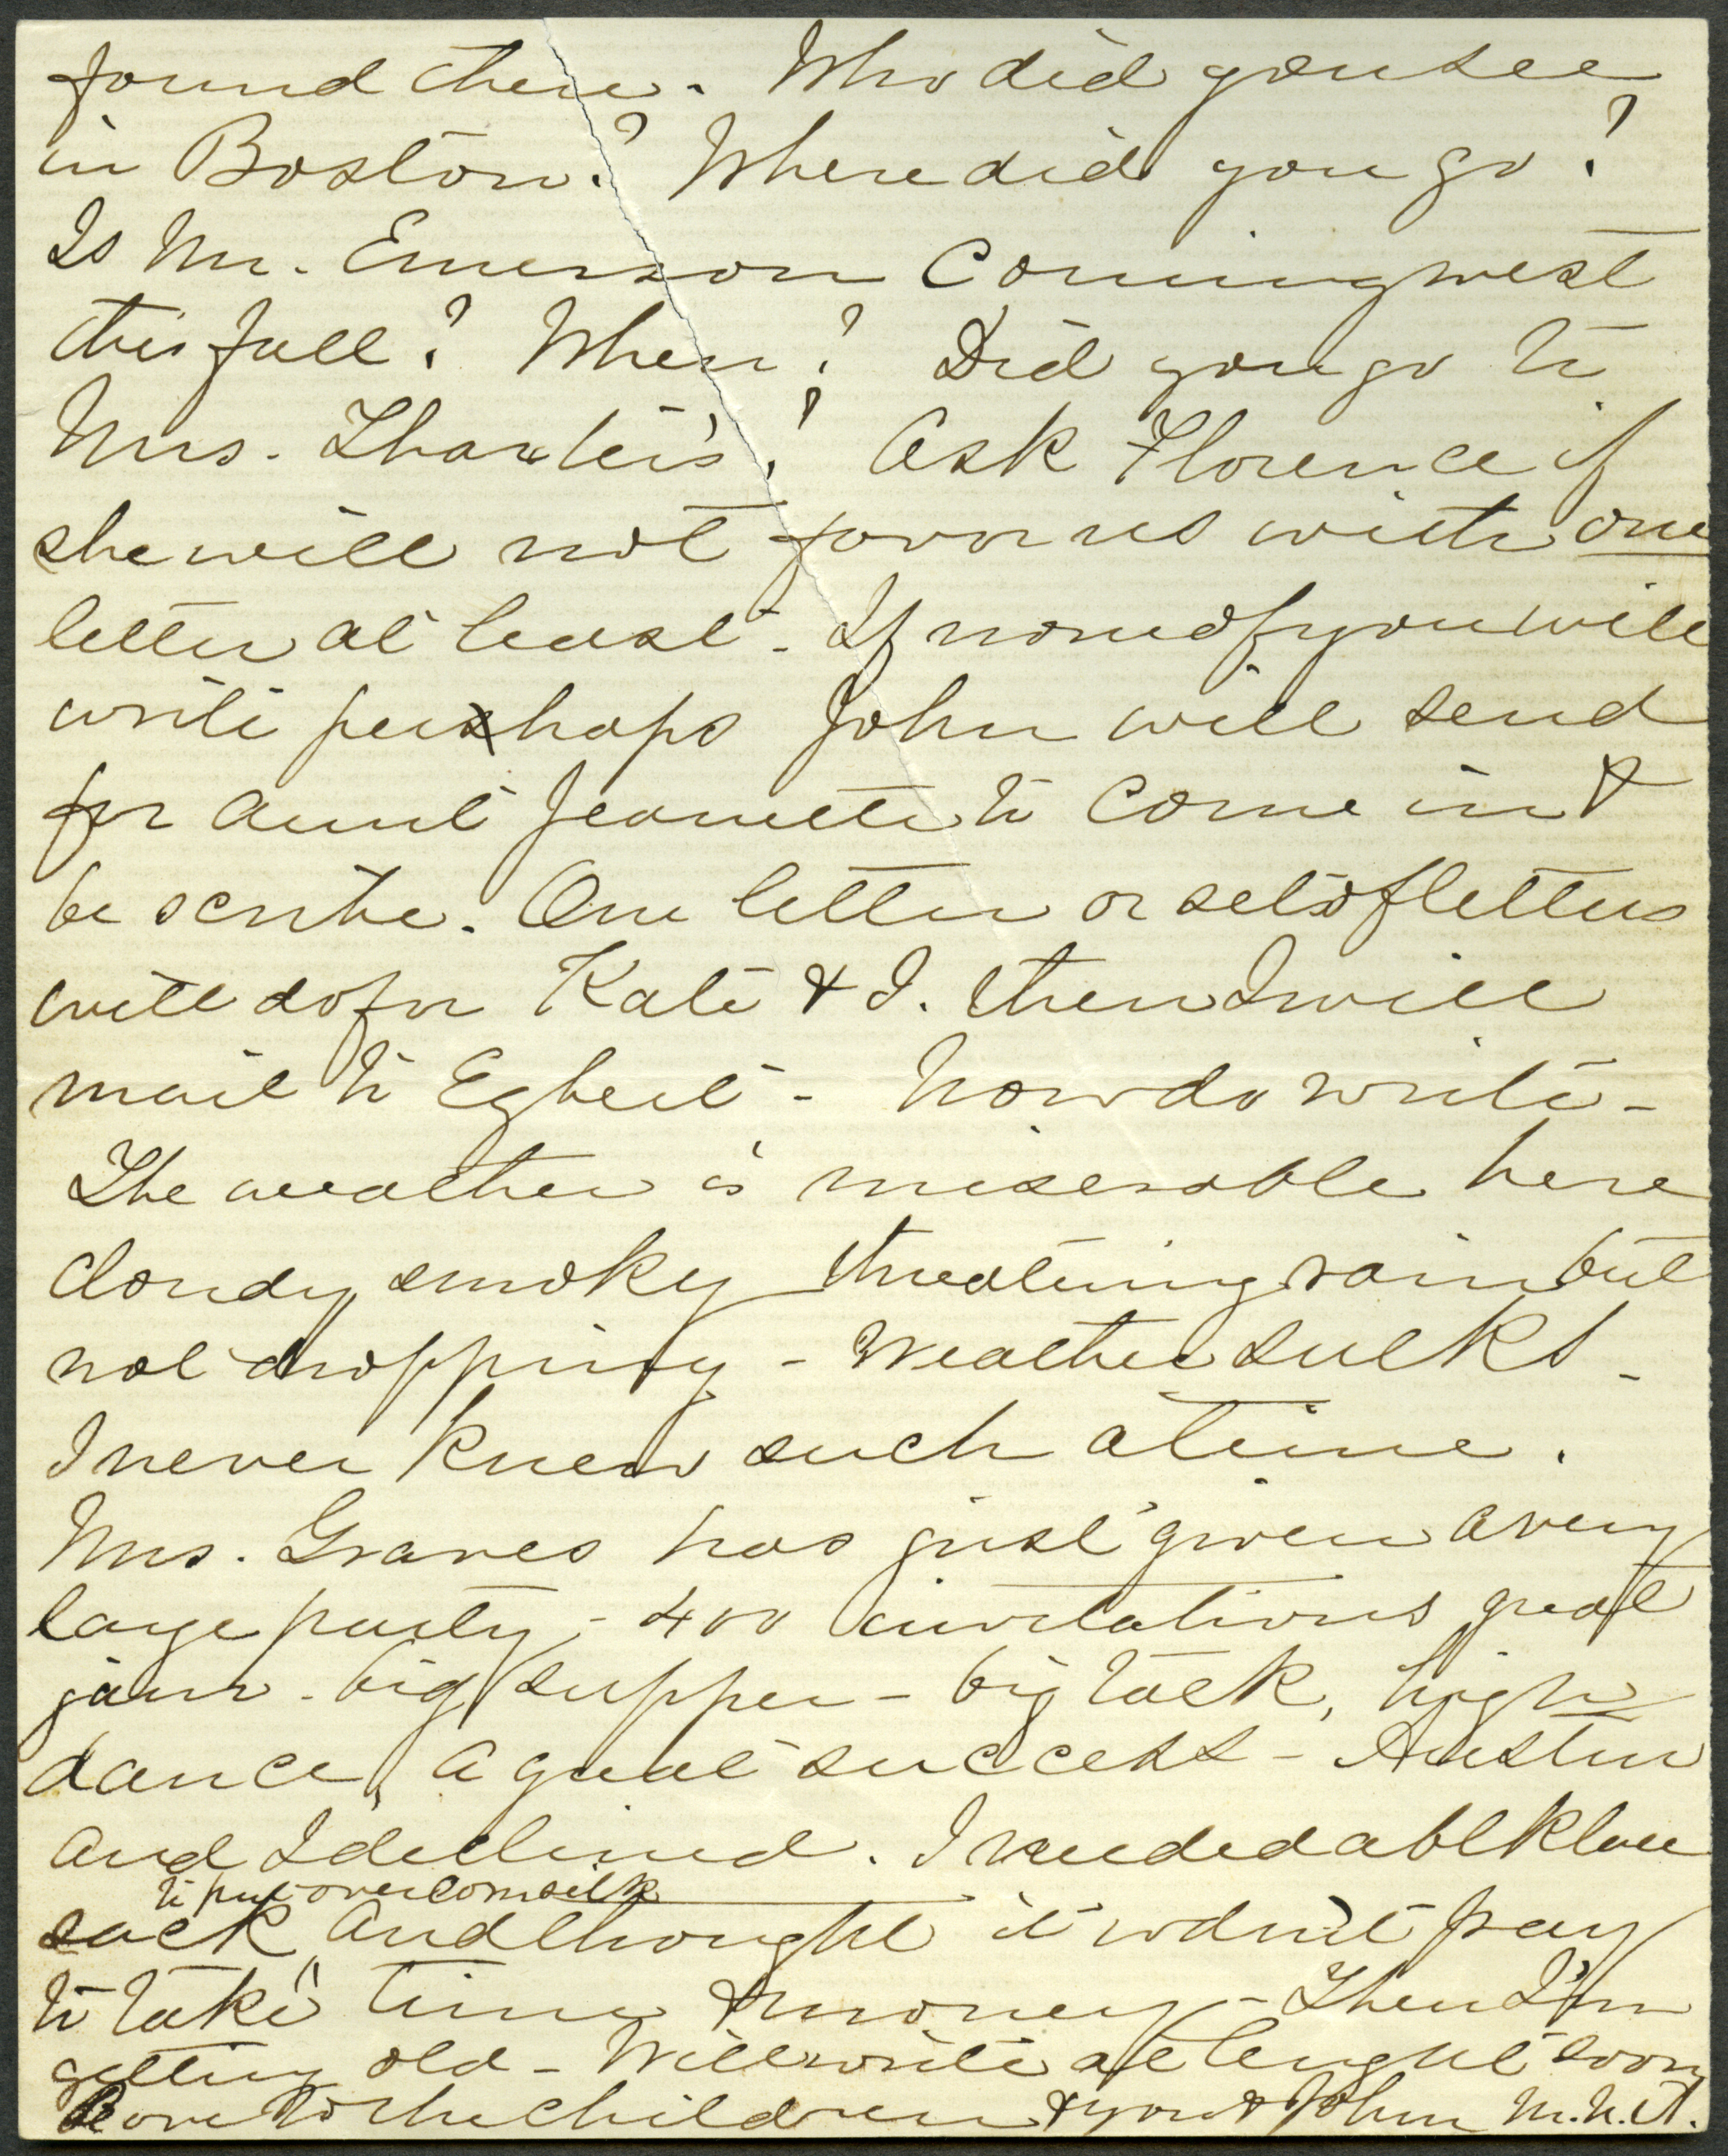 found there. Who did you see
in Boston? Where did you go?
Is Mr. Emerson Coming west
this fall? When? Did you go to
Mrs. Thaxter's? Ask Florence if
she will not favor us with one
letter at least - If none of you will
write perhaps John will send
for Aunt Jeanette to Come in &
be scribe. One letter or set of letters
will do for Kate & I. then I will
mail to Egbert - Now do write -
The weather is miserable here
cloudy smoky threatening rain but
not dropping - Weather sulks -
I never knew such a time.
Mrs. Graves has just given a very
large party - 400 invitations great
jam - big supper - big talk, high
dance, a great success - Austin
and I declined. I needed a blk lace
to put over com silk
sack and thought it wdn't pay
to take time & money - Then I'm
getting old - Will write at lenght soon
Love to the children & you & John M.N.A.